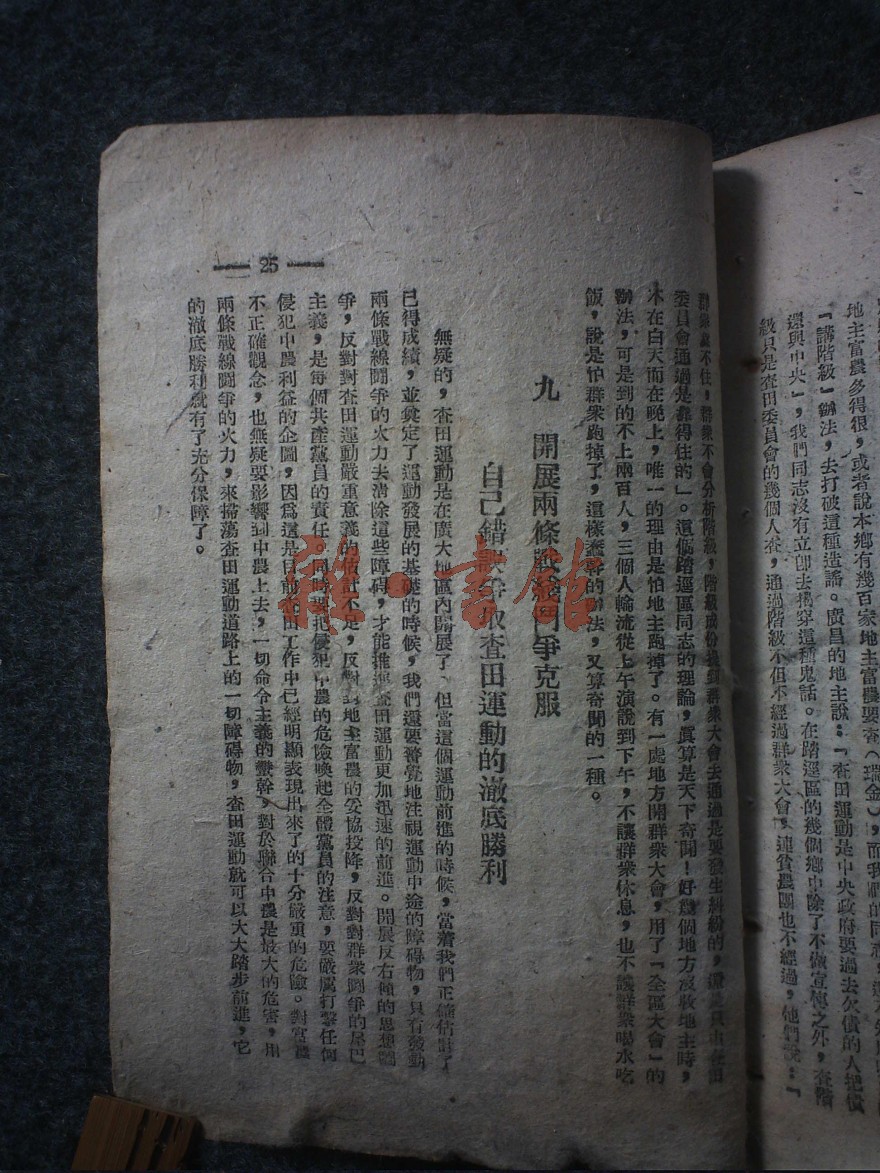 地主富農多得很，或者說本鄉有幾百家地主富農要查（瑞金），而我們的同志，
「講階級」辦法，去打破這種造謠。廣昌的地主說：「查田運動是中央政府要過去欠債的人把債
還與中央」，我們同志沒有立卽去揭穿這種鬼話。在踏逕區的幾個鄉中除了不做宣傳之外，查階
級只是查田委員會的幾個人查，通過階級不但不經過群衆大會，連貧農團也不經過，他們說：「
群衆靠不住，群衆不會分析階級，階級成份提到群衆大會去通過是要發生糾紛的，還是只由查田
委員會通過是靠得住的」。這個踏逕區同志的理論，眞算是天下奇聞！好幾個地方沒收地主時，
不在白天而在晚上，唯一的理由是怕地主跑掉了。有一處地方開群衆大會，用了「全區大會」的
辦法，可是到的不上兩百人，三個人輪流從上午演說到下午，不讓群衆休息，也不讓群衆喝水吃
飯，說是怕群衆跑掉了，這樣蠢幹的辦法，又算奇聞的一種。
九　開展兩條戰線鬥爭克服
自己錯誤爭取查田運動的澈底勝利
無疑的，查田運動是在廣大地區內開展了，但當這個運動前進的時候，當着我們正確估計了
已得成績，並奠定了運動發展的基礎的時候，我們還要警覺地注視運動中途的障碍物，只有發動
兩條戰線鬪爭的火力去淸除這些障碍，才能推進查田運動更加迅速的前進。開展反右傾的思想鬪
爭，反對對查田運動嚴重意義的估計不足，反對對地主富農的妥協投降，反對對群衆鬪爭的尾巴
主義，是每個共產黨員的責任，同時要把侵犯中農的危險喚起全體黨員的注意，要嚴厲打擊任何
侵犯中農利益的企圖，因爲這是目前查田工作中已經明顯表現出來了的十分嚴重的危險。對富農
不正確觀念，也無疑要影響到中農上去，一切命令主義的蠻幹，對於聯合中農是最大的危害，用
兩條戰線鬪爭的火力，來掃蕩查田運動道路上的一切障碍物，查田運動就可以大大踏步前進，它
的澈底勝利就有了充分保障了。
— 25 —
雜·書館